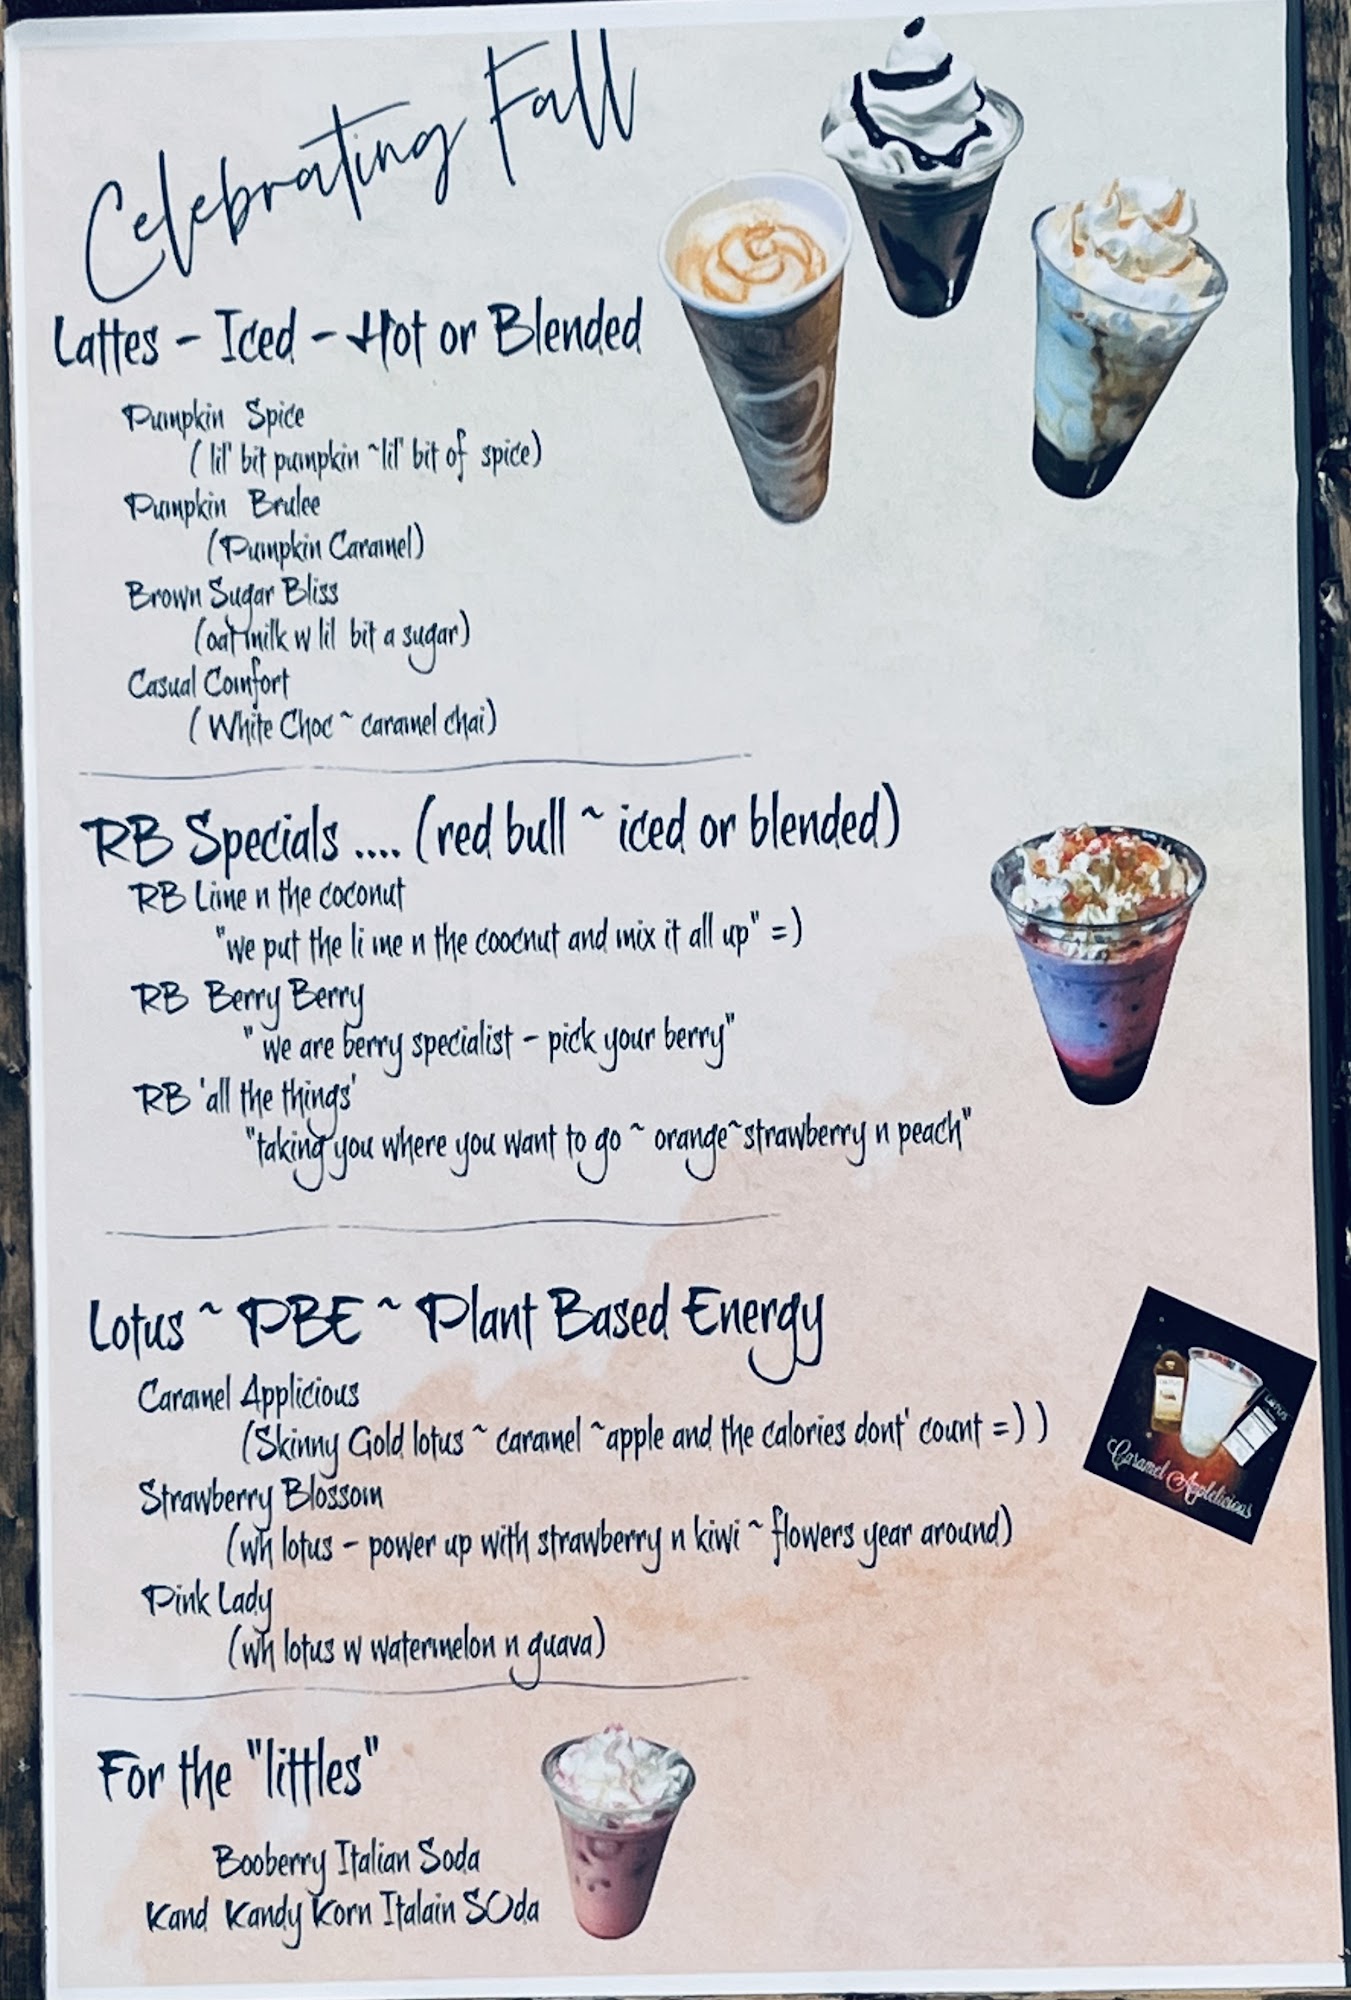 Celebrating Fall
Lattes - Iced - Hot or Blended
Pumpkin Spice
( lil' bit pumpkin ~lil' bit of spice)
Pumpkin Brulee
(Pumpkin Caramel)
Brown Sugar Bliss
(oat milk w lil bit a sugar)
Casual Comfort
( White Choc ~ caramel chai)
RB Specials .... (red bull ~ iced or blended)
RB Lime n the coconut
"we put the li me n the coocnut and mix it all up" =)
RB Berry Berry
" we are berry specialist - pick your berry"
RB 'all the things'
"taking you where you want to go ~ orange~strawberry n peach"
Lotus ~ PBE ~ Plant Based Energy
Caramel Applicious
(Skinny Gold lotus ~ caramel ~apple and the calories dont' count =) )
Caramel Applelicious
Strawberry Blossom
(wh lotus - power up with strawberry n kiwi ~ flowers year around)
Pink Lady
(wh lotus w watermelon n guava)
For the "littles"
Booberry Italian Soda
Kand Kandy Korn Italain SOda